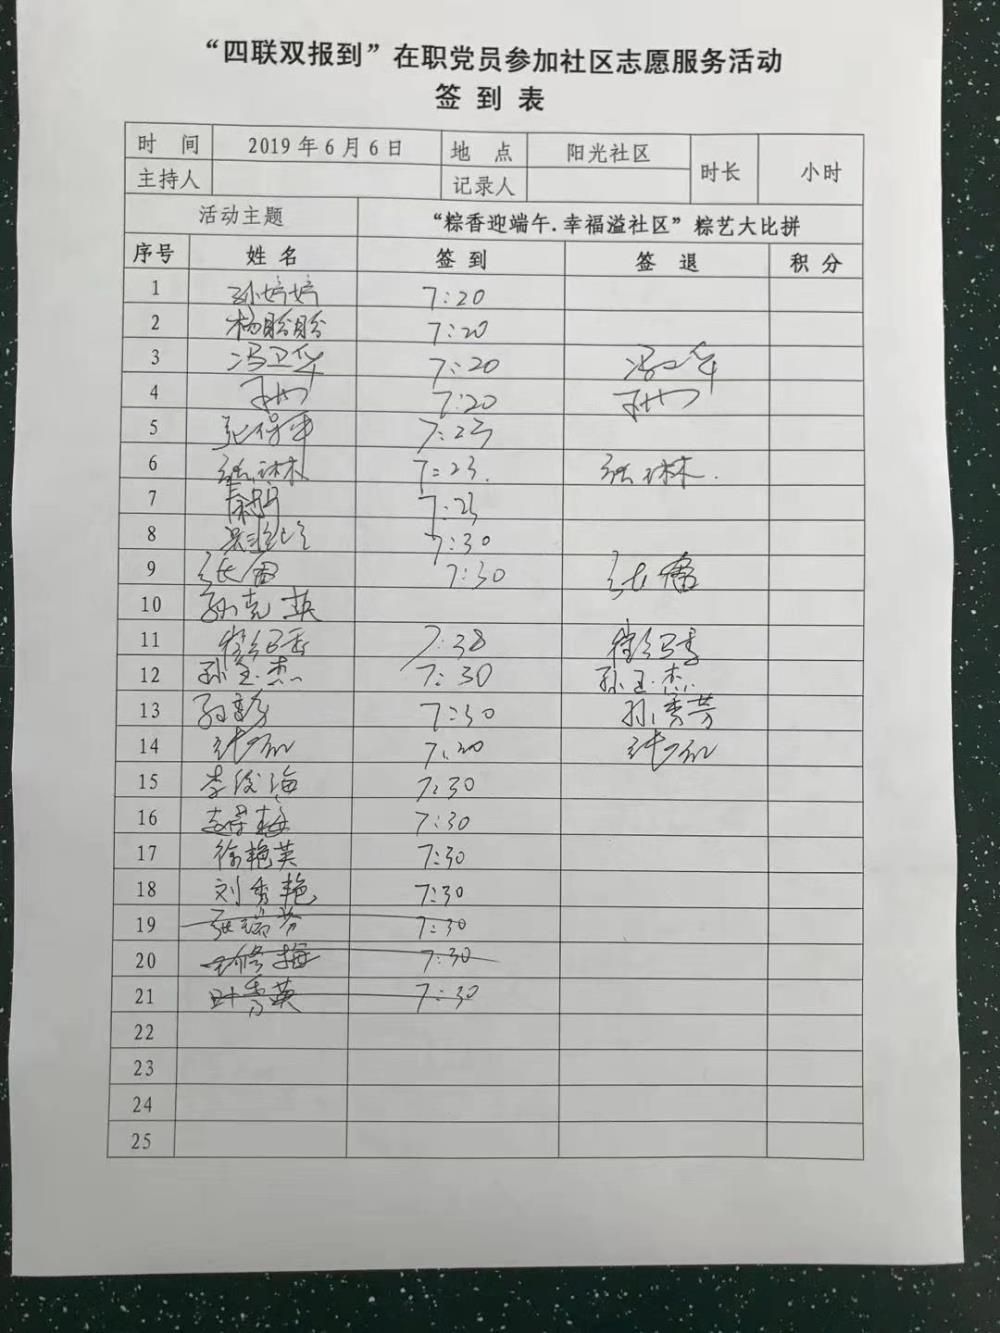 “四联双报到”在职党员参加社区志愿服务活动
签到表
时间 2019年6月6日 地点 阳光社区 时长 小时
主持人 记录人
活动主题 “粽香迎端午.幸福溢社区”粽艺大比拼
序号 姓名 签到 签退 积分
1 孙婷婷 7:20
2 杨盼盼 7:20
3 冯卫华 7:20 冯卫华
4 7:20
5 张保 7:23
6 张琳 7:23. 张琳.
7 7:23
8 7:30
9 张 7:30 张
10 孙克英
11 7:38
12 孙玉杰 7:30 孙玉杰
13 孙秀芳 7:30 孙秀芳
14 7:30
15 李俊海 7:30
16 7:30
17 徐艳英 7:30
18 刘秀艳 7:30
19 张瑞芳 7:30
20 王修梅 7:30
21 叶秀英 7:30
22
23
24
25